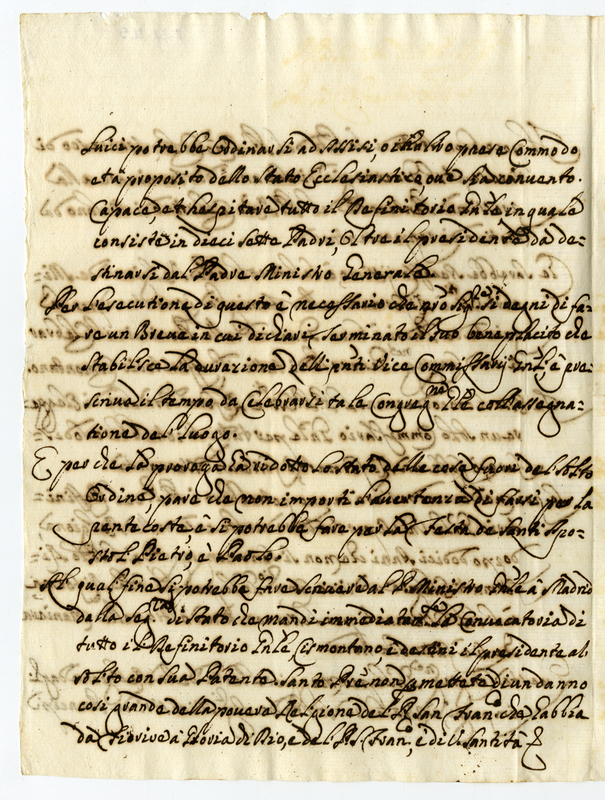 luici potrebbe Ordinarsi ad Assisi, o in altro paese Commodo
et à proposito dello Stato Ecclesiastico, oue sia conuento.
Capace, et hospitare tutto il Definitorio Gnle in quale
consiste in dieci sette Padri, Oltre il presidente da de-
stinarsi dal Padre Ministro Generale
Per l'esecutione di questo è necessario che nro Sigre si degni di fa-
re un Breue in cui dichiari terminato il suo beneplacito che
stabilisce la durazione delli pnti Vice Commissarij Gnli, è pre-
scriua il tempo da Celebrarsi tale Congregne Gnle coll'assegna-
tione del luogo.
E perche la proroga hà ridotto lo stato delle cose fuori del solito
Ordine, pare che non importi l'auertenza di farsi per la
pentecoste, è si potrebbe fare per la festa de Santi Apo-
stoli Pietro, è Paolo.
Al qual fine si potrebbe fare scriuere al P. Ministro Gnle à Madrid
dalla Segria di Stato che mandi immediatamte la Conuocatoria di
tutto il Definitorio Gnle, Cismontano, è destini il presidente al
solito con sua Patente. Santo Pre non permettete di un danno
cosi grande della pouera Religione del P. San Franco che habbia
da fiorire à gloria di Dio, e del P. S. Franco, è di V. Santità